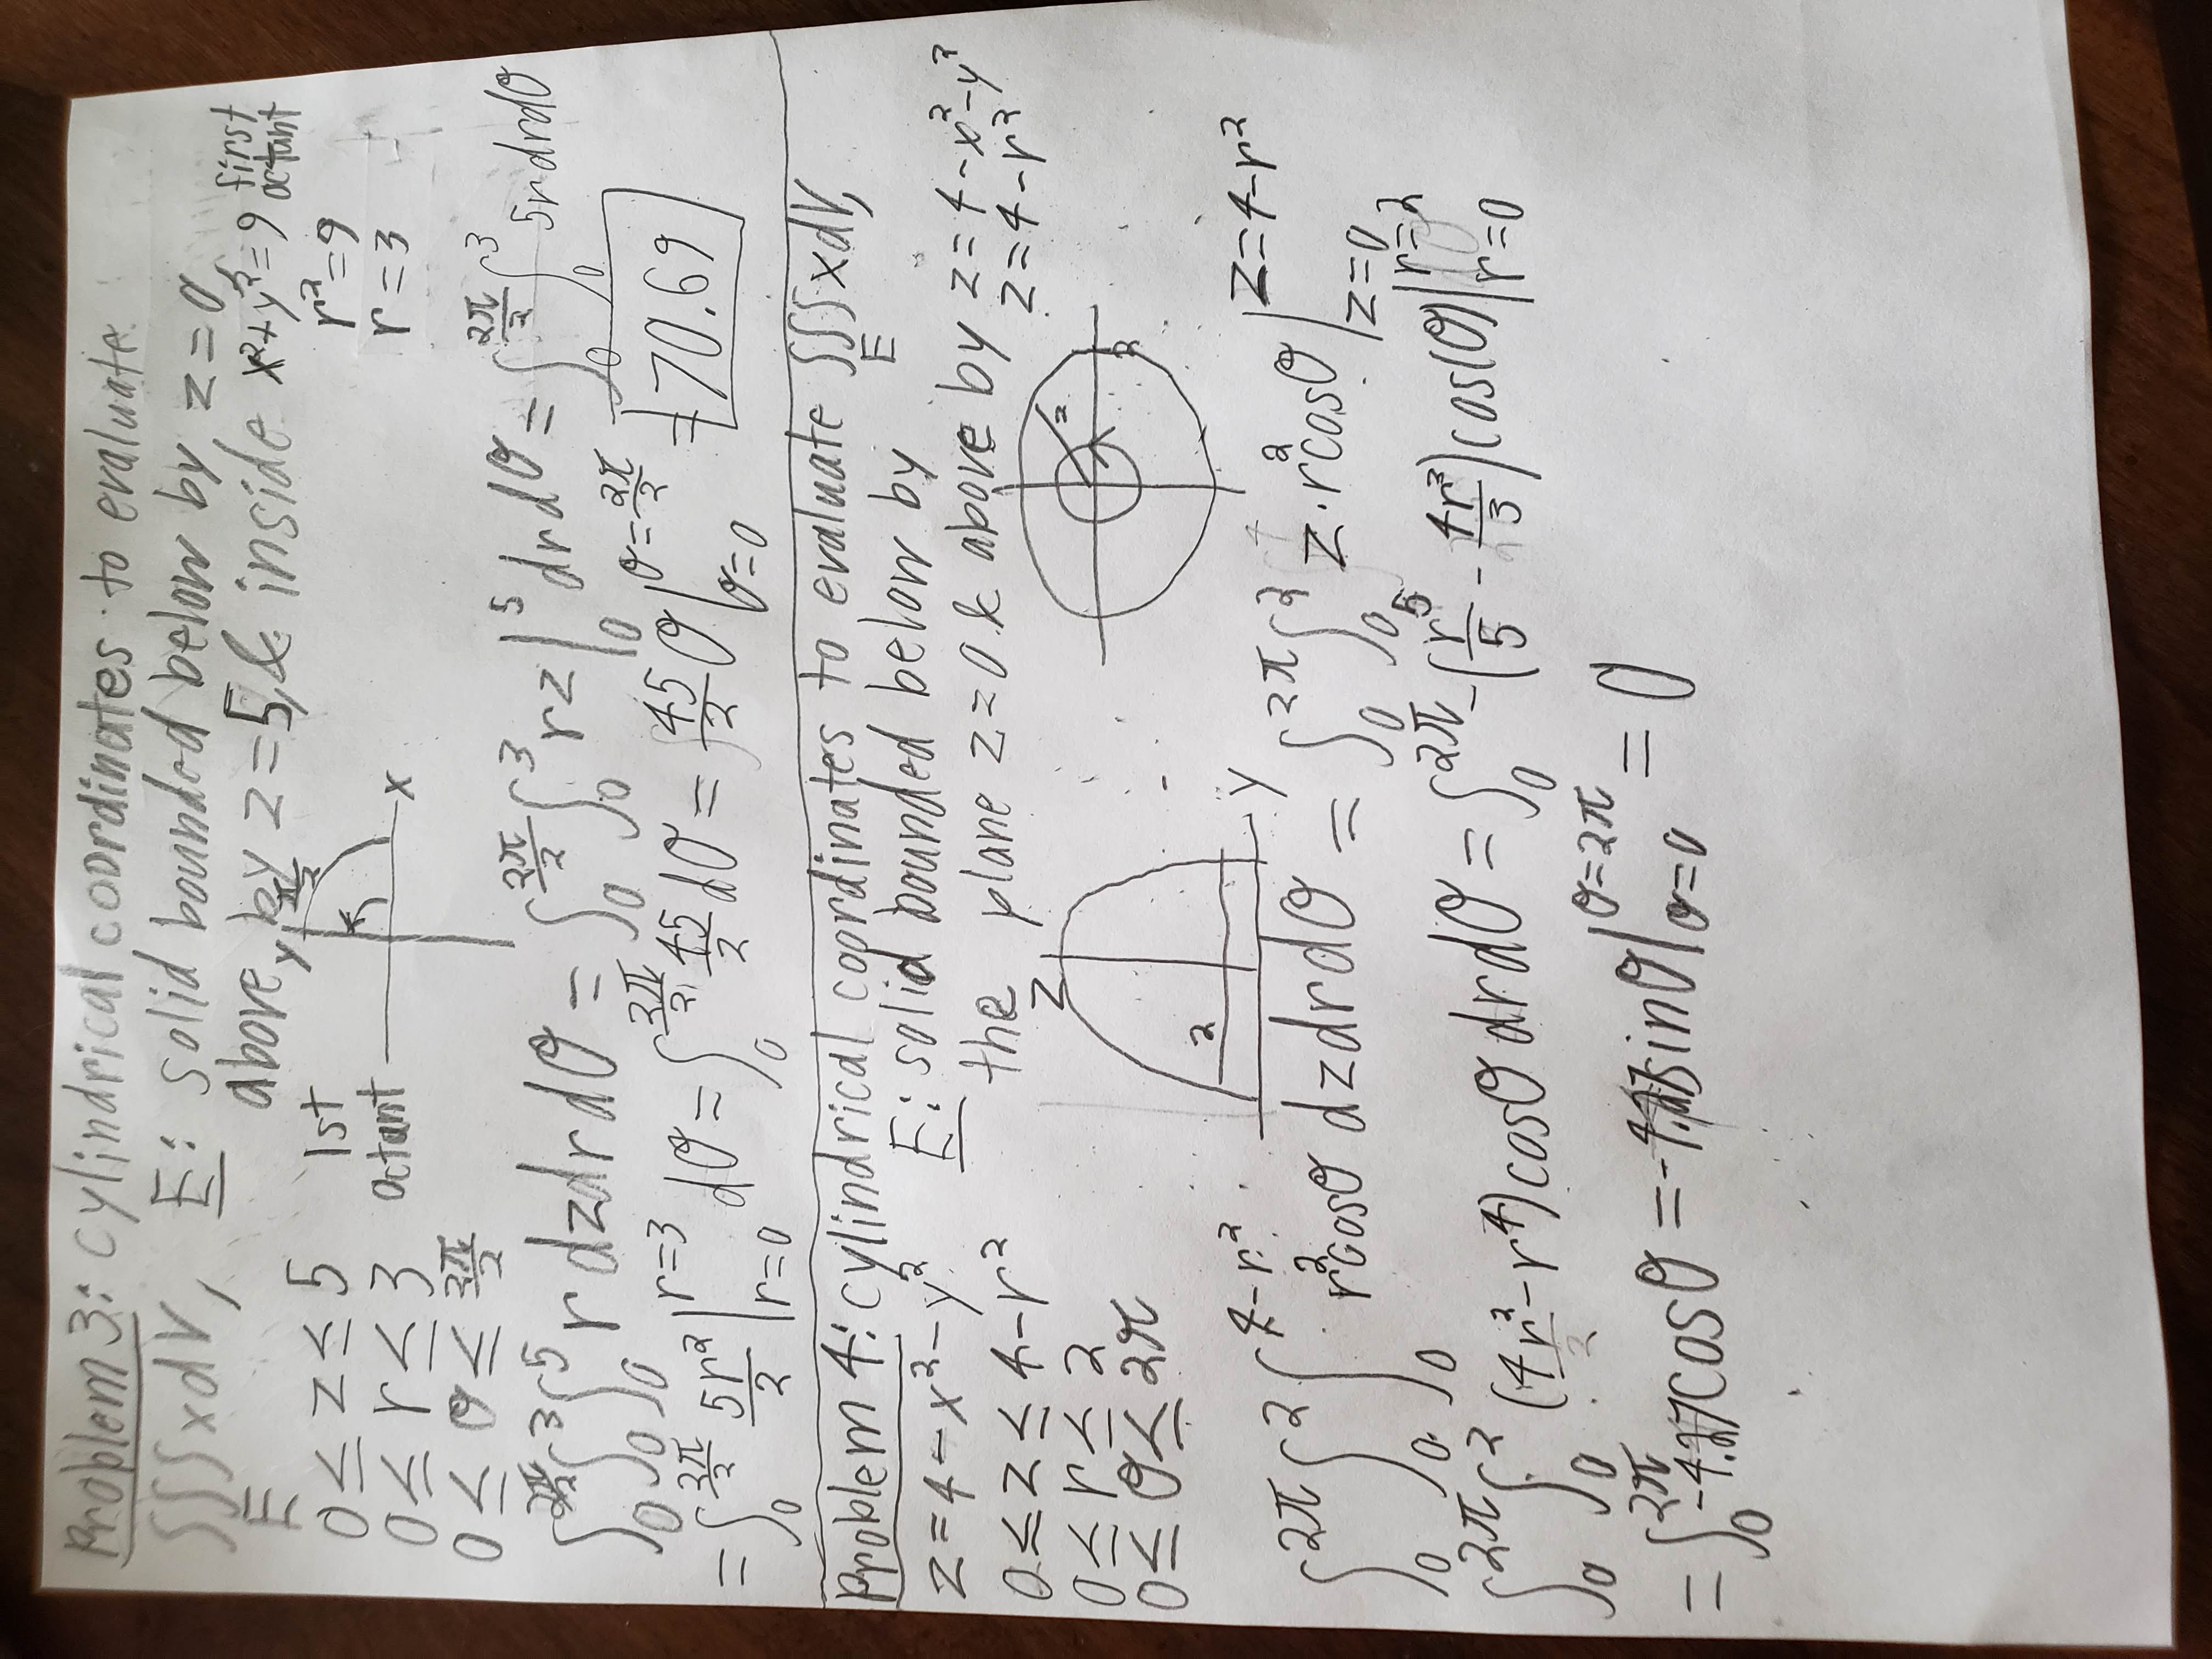 Problem 3: cylindrical coordinates to evaluate
∭_E x dV, E: solid bounded below by z = 0,
above by z = 5, & inside x² + y² = 9 first octant
0 ≤ z ≤ 5 1st octant y π/2 x r² = 9
0 ≤ r ≤ 3 r = 3
0 ≤ θ ≤ 2π/2
∫₀^(2π/2) ∫₀³ ∫₀⁵ r dz dr dθ = ∫₀^(2π/2) ∫₀³ rz |₀⁵ dr dθ = ∫₀^(2π/2) ∫₀³ 5r dr dθ
= ∫₀^(2π/2) 5r²/2 |_(r=0)^(r=3) dθ = ∫₀^(2π/2) 45/2 dθ = 45/2 θ |_(θ=0)^(θ=2π/2) = 70.69
Problem 4: cylindrical coordinates to evaluate ∭_E x dV,
z = 4 - x² - y² E: solid bounded below by
the plane z = 0 & above by z = 4 - x² - y²
0 ≤ z ≤ 4 - r² z = 4 - r²
0 ≤ r ≤ 2 z 2 2
0 ≤ θ ≤ 2π 2 y
∫₀^(2π) ∫₀² ∫₀^(4-r²) r² cosθ dz dr dθ = ∫₀^(2π) ∫₀² z · r² cosθ |_(z=0)^(z=4-r²)
∫₀^(2π) ∫₀² (4r² - r⁴) cosθ dr dθ = ∫₀^(2π) -(r⁵/5 - 4r³/3) cos(θ) |_(r=0)^(r=2)
= ∫₀^(2π) -4.27 cosθ = -4.27 sinθ |_(θ=0)^(θ=2π) = 0